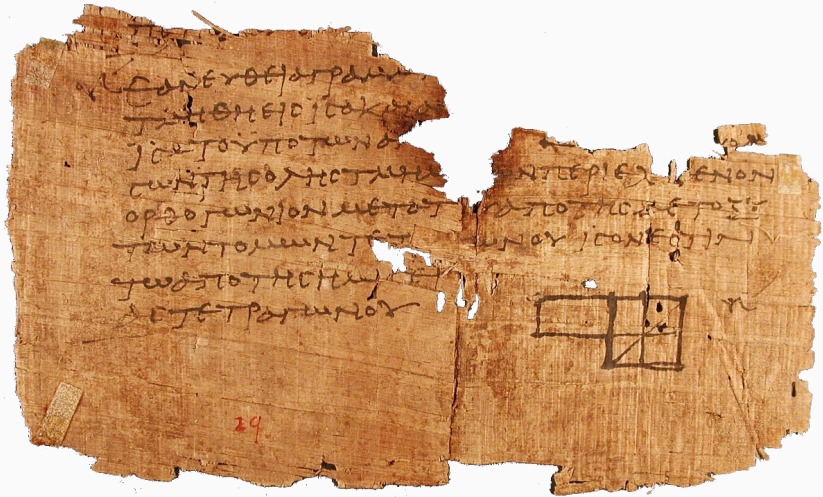 ΕΑΝΕΥΘΕΙΑΓΡΑΜΜ
ΤΜΗΘΗΕΙϹΙϹΑΚΑΙΑ
ΙϹΑΤΟΥΠΟΤΩΝΑ
ϹΩΝΤΗϹΟΛΗϹΤΜΗΜ ΩΝΠΕΡΙΕΧ ΕΝΟΝ
ΟΡΘΟΓΩΝΙΟΝΜΕΤΑΤ ΥΑΠΟΤΗϹΜΕΤΑΞΥ
ΤΩΝΤΟΜΩΝΤΕΤΡ ΩΝΟΥΙϹΟΝΕϹΤΙΝ
ΤΩΑΠΟΤΗϹΗΜΙ ΕΙ
ΑϹΤΕΤΡΑΓΩΝΟΥ
29